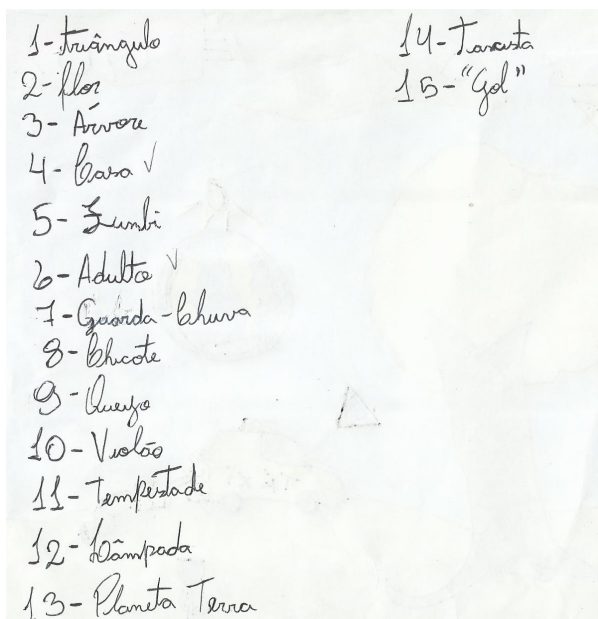 1-triângulo
2-flor
3-Árvore
4-Casa √
5-Zumbi
6-Adulto √
7-Guarda-Chuva
8-Chicote
9-Queijo
10-Violão
11-Tempestade
12-Lâmpada
13-Planeta Terra
14-Taxista
15-"Gol"